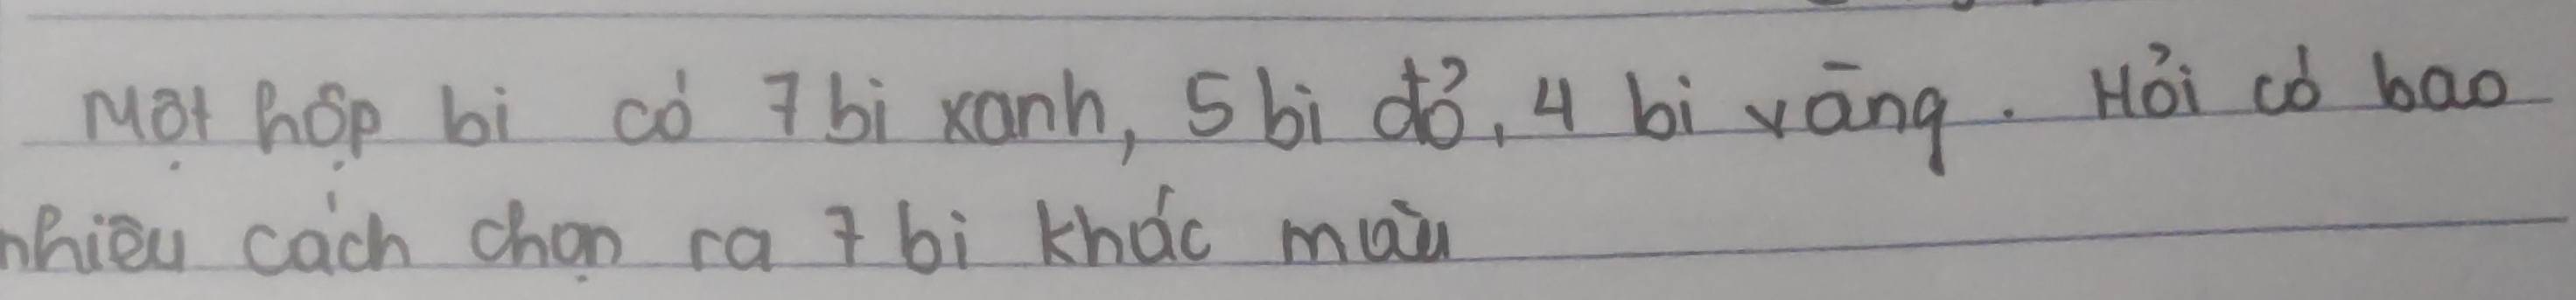 Một hộp bi có 7 bi xanh, 5 bi đỏ, 4 bi vàng. Hỏi có bao
nhiêu cách chọn ra 7 bi khác màu